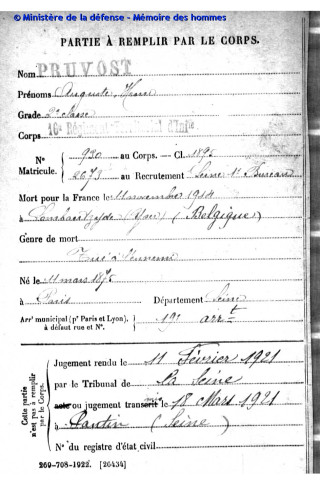 © Ministère de la défense - Mémoire des hommes
PARTIE À REMPLIR PAR LE CORPS.
Nom PRUVOST
Prénoms Auguste, Henri
Grade 2e Classe
Corps 16e Régiment Territorial d'Infie
N° 930 au Corps. — Cl. 1895
Matricule. 2673 au Recrutement Seine 1er Bureau
Mort pour la France le 11 novembre 1914
à (Belgique)
Genre de mort
Tué à l'ennemi
Né le 11 mars 1875
à Paris Département Seine
Arrt municipal (pr Paris et Lyon), à défaut rue et N°. 19e arrt
Cette partie n'est pas à remplir par le Corps.
Jugement rendu le 11 Février 1921
par le Tribunal de la Seine
acte ou jugement transcrit le 18 Mars 1921
à Pantin (Seine)
N° du registre d'état civil
269-708-1922. [26434]